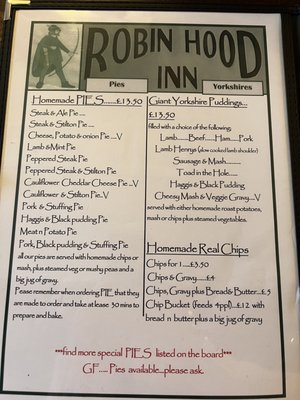 ROBIN HOOD
INN
Pies
Yorkshires
Homemade P.I.E.S.......£13.50
Steak & Ale Pie ....
Steak & Stilton Pie ....
Cheese, Potato & onion Pie ....V
Lamb & Mint Pie
Peppered Steak Pie
Peppered Steak & Stilton Pie
Cauliflower Cheddar Cheese Pie ...V
Cauliflower & Stilton Pie..V
Pork & Stuffing Pie
Haggis & Black pudding Pie
Meat n Potato Pie
Pork, Black pudding & Stuffing Pie
all our pies are served with homemade chips or
mash, plus steamed veg or mushy peas and a
big jug of gravy.
Please remember when ordering PIE, that they
are made to order and take at least 30 mins to
prepare and bake.
Giant Yorkshire Puddings...
£13.50
filled with a choice of the following;
Lamb........Beef......Ham.....Pork
Lamb Henrys (slow cooked lamb shoulder)
Sausage & Mash..........
Toad in the Hole......
Haggis & Black Pudding
Cheesy Mash & Veggie Gravy....V
served with either homemade roast potatoes,
mash or chips plus steamed vegetables.
Homemade Real Chips
Chips for 1 ....£3.50
Chips & Gravy.....£4
Chips, Gravy plus Bread & Butter...£5
Chip Bucket (feeds 4ppl)...£12 with
bread n butter plus a big jug of gravy
***find more special P.I.E.S listed on the board***
GF..... Pies available...please ask.